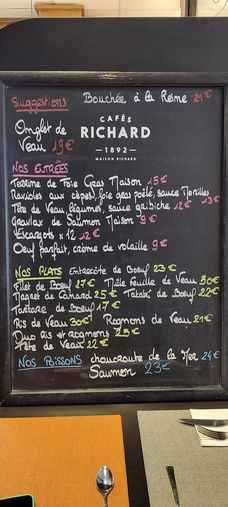 Suggestions Bouchée à la Reine 24€
CAFÉS
RICHARD
1892
MAISON RICHARD
Onglet de
Veau 19€
NOS ENTRÉES
Terrine de Foie Gras Maison 15€
Ravioles aux cèpes, foie gras poêlé, sauce Morilles 13€
Tête de Veau, légumes, sauce gribiche 12€
Gravlax de Saumon Maison 9€
Escargots x 12 12€
Oeuf parfait, crème de volaille 9€
NOS PLATS Entrecôte de Boeuf 23€
Filet de Boeuf 27€ Mille feuille de Veau 30€
Magret de Canard 25€ Tataki de Boeuf 22€
Tartare de Boeuf 17€
Ris de Veau 30€ Rognons de Veau 21€
Duo Ris et rognons 25€
Tête de Veau 22€
NOS POISSONS choucroute de la Mer 24€
Saumon 23€